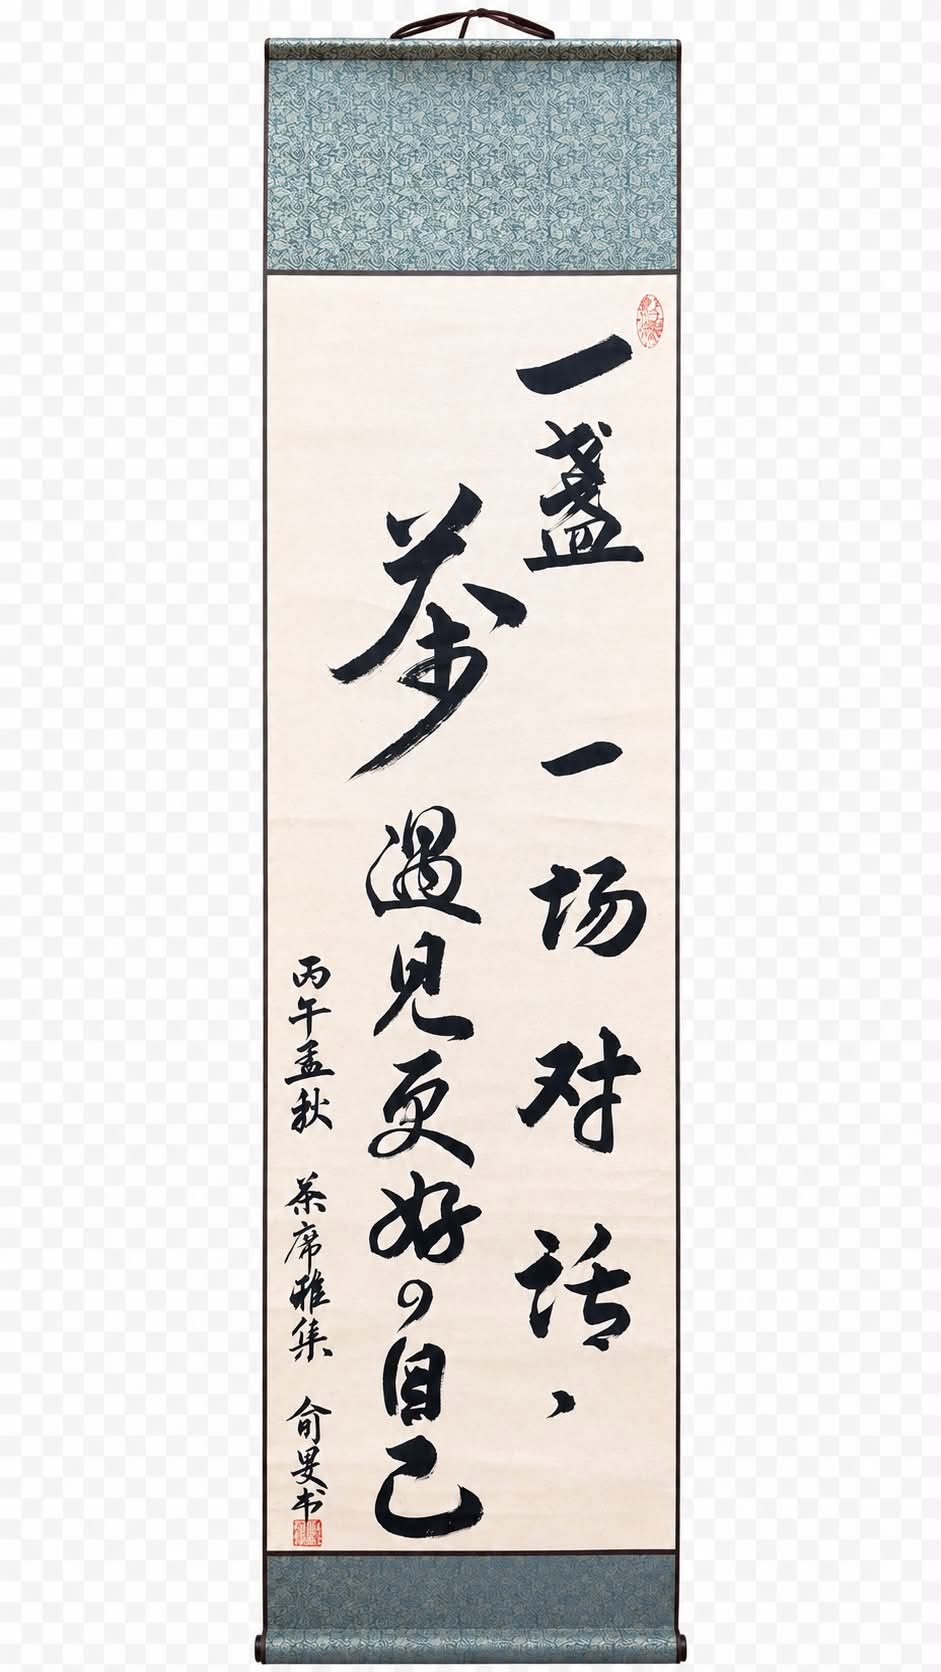 一盏一场对话，
茶遇见更好の自己
丙午孟秋 茶席雅集 俞旻书